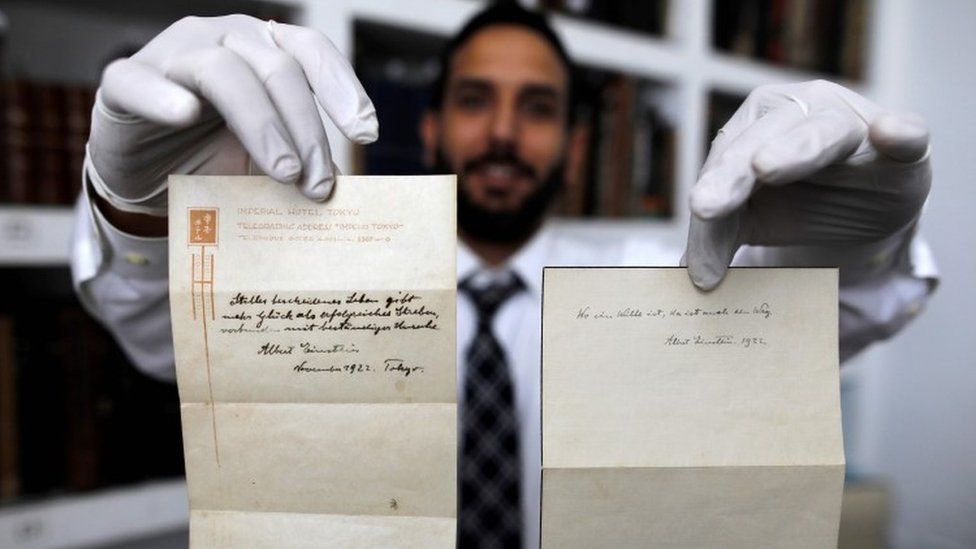 IMPERIAL HOTEL TOKYO
TELEGRAPHIC ADDRESS "IMPEHO TOKYO"
Stilles bescheidenes Leben gibt
mehr Glück als erfolgreiches Streben,
verbunden mit beständiger Unruhe.
Albert Einstein
November 1922. Tokyo.
Wo ein Wille ist, da ist auch ein Weg.
Albert Einstein. 1922.